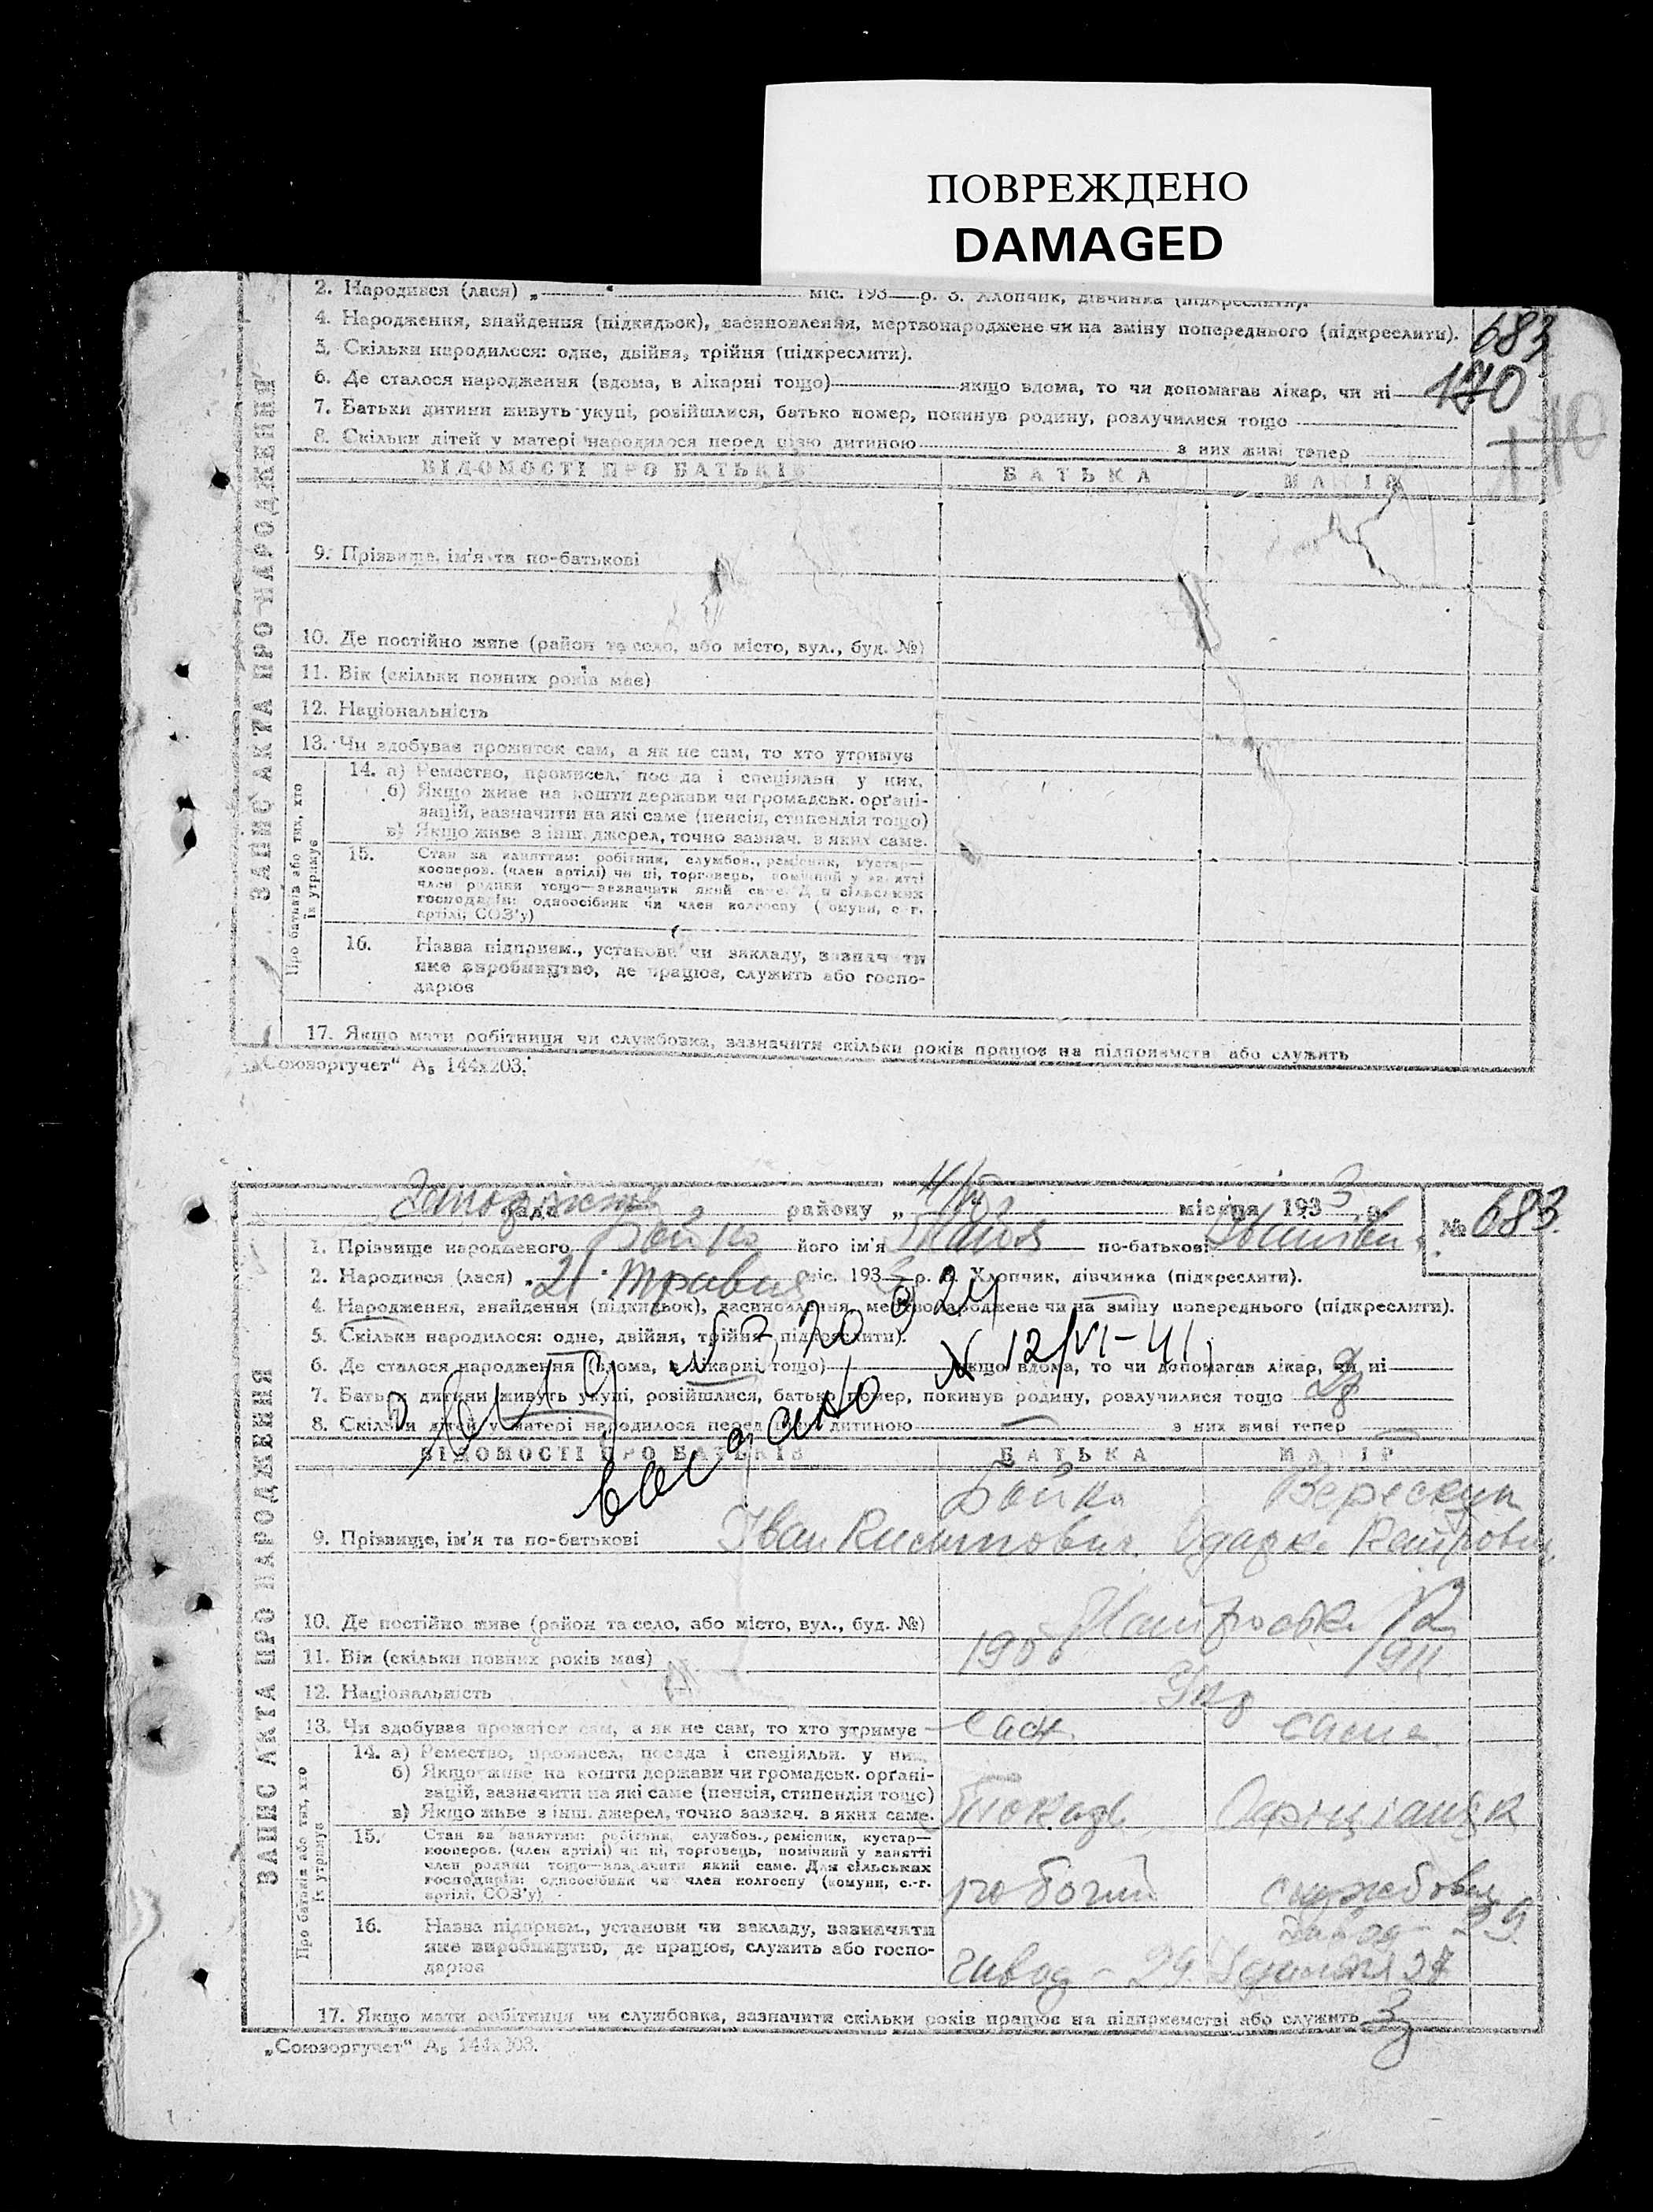 ПОВРЕЖДЕНО
DAMAGED
2. Народився (лася) „ міс. 193 р. 3. Хлопчик, дівчинка (підкреслити).
4. Народження, знайдення (підкидьок), засиновлення, мертвонароджене чи на зміну попереднього (підкреслити).
683
5. Скільки народилося: одне, двійня, трійня (підкреслити).
6. Де сталося народження (вдома, в лікарні тощо) якщо вдома, то чи допомагав лікар, чи ні
170
7. Батьки дитини живуть укупі, розійшлися, батько помер, покинув родину, розлучилися тощо
8. Скільки дітей у матері народилося перед цією дитиною з них живі тепер
ВІДОМОСТІ ПРО БАТЬКІВ БАТЬКА МАТІР
ЗАПИС АКТА ПРО НАРОДЖЕННЯ
9. Прізвище, ім'я та по-батькові
10. Де постійно живе (район та село, або місто, вул., буд. №)
11. Вік (скільки повних років має)
12. Національність
13. Чи здобуває прожиток сам, а як не сам, то хто утримує
Про батьків або тих, хто їх утримує
14. а) Ремество, промисел, посада і спеціяльн. у них.
б) Якщо живе на кошти держави чи громадськ. органі-
зацій, зазначити на які саме (пенсія, стипендія тощо)
в) Якщо живе з інш. джерел, точно зазнач. в яких саме.
15. Стан за заняттям: робітник, службов., ремісник, кустар—
кооперов. (член артілі) чи ні, торговець, помічний у занятті
член родини тощо—зазначити який саме. Для сільських
господарів: одноосібник чи член колгоспу (комуни, с.-г.
артілі, СОЗ'у)
16. Назва підприєм., установи чи закладу, зазначити
яке виробництво, де працює, служить або госпо-
дарює
17. Якщо мати робітниця чи службовка, зазначити скільки років працює на підприємстві або служить
„Союзоргучет“ А₅ 144х203.
района „ місяця 1933 р.
№ 683
1. Прізвище народженого Бойко його ім'я по-батькові
2. Народився (лася) „21" травня міс. 1933 р. 3. Хлопчик, дівчинка (підкреслити).
4. Народження, знайдення (підкидьок), засиновлення, мертвонароджене чи на зміну попереднього (підкреслити).
5. Скільки народилося: одне, двійня, трійня (підкреслити).
6. Де сталося народження (вдома, в лікарні тощо) якщо вдома, то чи допомагав лікар, чи ні
№ 12/VI-41
7. Батьки дитини живуть укупі, розійшлися, батько помер, покинув родину, розлучилися тощо
8. Скільки дітей у матері народилося перед цією дитиною з них живі тепер
ВІДОМОСТІ ПРО БАТЬКІВ БАТЬКА МАТІР
ЗАПИС АКТА ПРО НАРОДЖЕННЯ
Бойко
9. Прізвище, ім'я та по-батькові Іван Одарка
10. Де постійно живе (район та село, або місто, вул., буд. №)
11. Вік (скільки повних років має) 1911
12. Національність Укр
13. Чи здобуває прожиток сам, а як не сам, то хто утримує сам сама
Про батьків або тих, хто їх утримує
14. а) Ремество, промисел, посада і спеціяльн. у них.
б) Якщо живе на кошти держави чи громадськ. органі-
зацій, зазначити на які саме (пенсія, стипендія тощо)
в) Якщо живе з інш. джерел, точно зазнач. в яких саме. Токарь
15. Стан за заняттям: робітник, службов., ремісник, кустар—
кооперов. (член артілі) чи ні, торговець, помічний у занятті
член родини тощо—зазначити який саме. Для сільських
господарів: одноосібник чи член колгоспу (комуни, с.-г.
артілі, СОЗ'у) робочий службовка
16. Назва підприєм., установи чи закладу, зазначити завод - 29
яке виробництво, де працює, служить або госпо-
дарює завод - 29
17. Якщо мати робітниця чи службовка, зазначити скільки років працює на підприємстві або служить 3
„Союзоргучет“ А₅ 144х203.